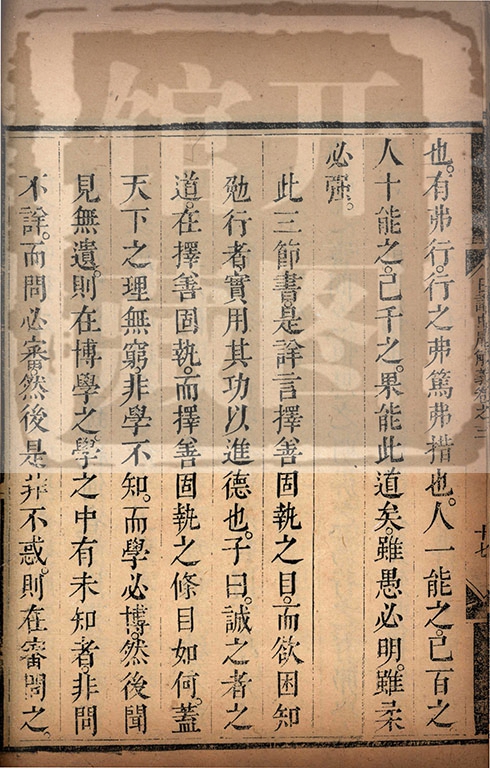 也。有弗行。行之弗篤弗措也。人一能之。己百之
人十能之。己千之。果能此道矣。雖愚必明。雖柔
必强。
此三節書。是詳言擇善固執之目。而欲困知
勉行者。實用其功以進德也。子曰。誠之者之
道。在擇善固執。而擇善固執之條目如何。蓋
天下之理無窮。非學不知。而學必博。然後聞
見無遺。則在博學之。學之中有未知者。非問
不詳。而問必審。然後是非不惑。則在審問之。
日講中庸解義卷之二
十七